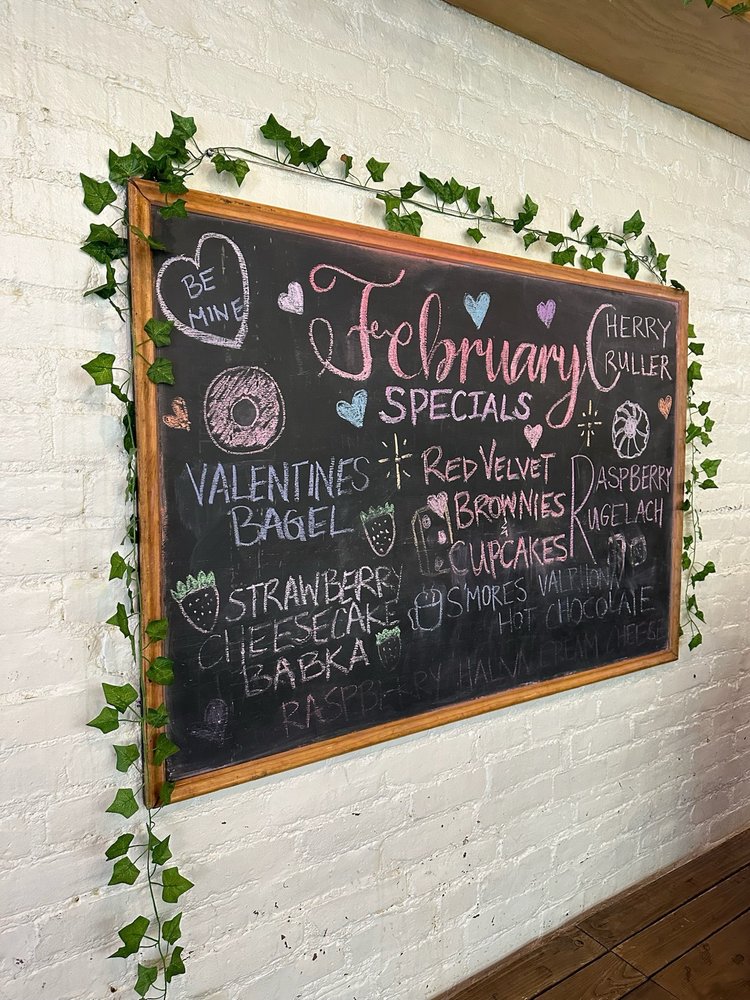 BE
MINE
February
SPECIALS
CHERRY
CRULLER
VALENTINES
BAGEL
RED VELVET
BROWNIES
&
CUPCAKES
RASPBERRY
RUGELACH
STRAWBERRY
CHEESECAKE
BABKA
S'MORES VALRHONA
HOT CHOCOLATE
RASPBERRY HALVA CREAM CHEESE